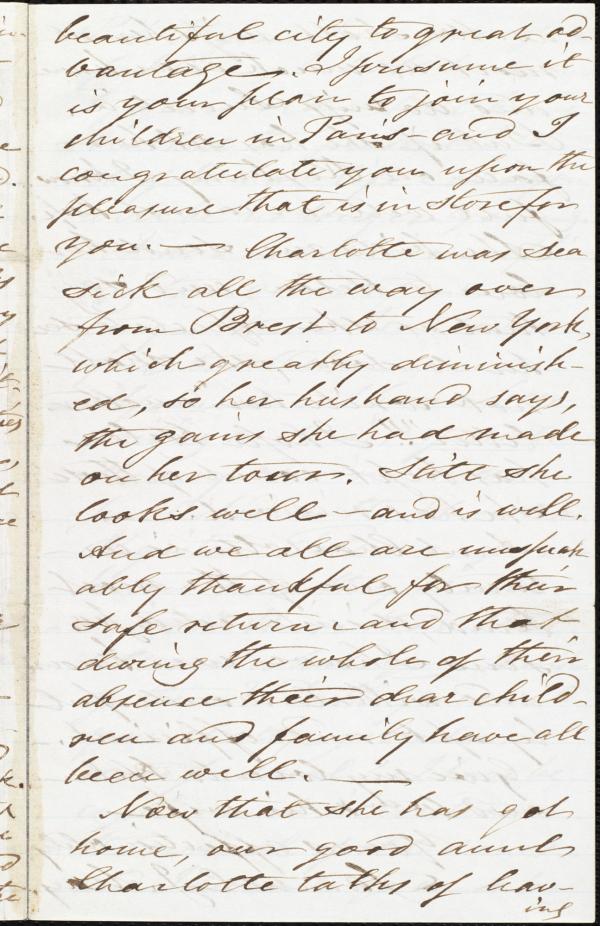 beautiful city to great ad
vantage. I presume it
is your plan to join your
children in Paris - and I
congratulate you upon the
pleasure that is in store for
you. — Charlotte was sea
sick all the way over
from Brest to New York,
which greatly diminish-
ed, so her husband says,
the gains she had made
on her tour. Still she
looks well - and is well.
And we all are unspeak
ably thankful for their
safe return - and that
during the whole of their
absence their dear child-
ren and family have all
been well. —
Now that she has got
home, our good aunt
Charlotte talks of hav-
ing